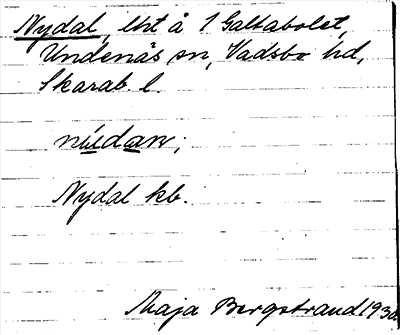 Nydal, lht å 1 Galtabolet,
Undenäs sn, Vadsbo hd,
Skarab. l.
Nydal kb.
Maja Bergstrand